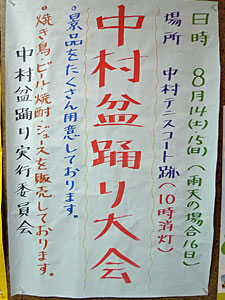 日時 8月14(土)15(日)(雨天の場合16日)
場所 中村テニスコート跡(10時消灯)
中村盆踊り大会
。景品をたくさん用意しております。
。焼き鳥・ビール・焼酎・ジュースを販売しております。
中村盆踊り実行委員会